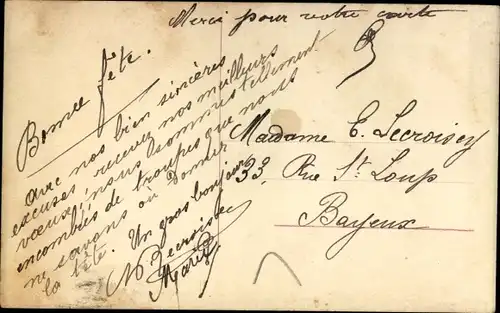 Merci pour votre carte
Bonne fête.
Avec nos bien sincères
excuses recevez nos meilleurs
vœux, nous sommes tellement
encombrés de troupes que nous
ne savons où donner
la tête. Un gros bonjour
Marie
Madame E. Lecroisey
33, Rue St Loup
Bayeux